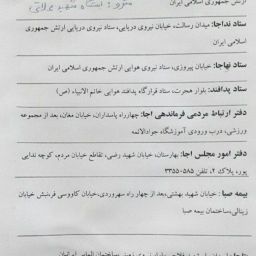 ارتش جمهوری اسلامی ایران
مترو: ایستگاه شهید
ستاد نداجا: میدان رسالت، خیابان نیروی دریایی، ستاد نیروی دریایی ارتش جمهوری
اسلامی ایران
ستاد نهاجا: خیابان پیروزی، ستاد نیروی هوایی ارتش جمهوری اسلامی ایران
ستاد پدافند: بلوار هجرت، ستاد قرارگاه پدافند هوایی خاتم الانبیاء (ص)
دفتر ارتباط مردمی فرماندهی اجا: چهارراه پاسداران، خیابان مغان، بعد از مجموعه
ورزشی، درب ورودی آموزشگاه جوادالائمه
دفتر امور مجلس اجا: بهارستان، خیابان شهید رضی، تقاطع خیابان مردم، کوچه ندایی
پور، پلاک ۲، تلفن ۳۳۵۵۰۵۸۵
بیمه صبا: خیابان شهید بهشتی، بعد از چهار راه سهروردی، خیابان کاووسی فر، نبش خیابان
زینالی، ساختمان بیمه صبا